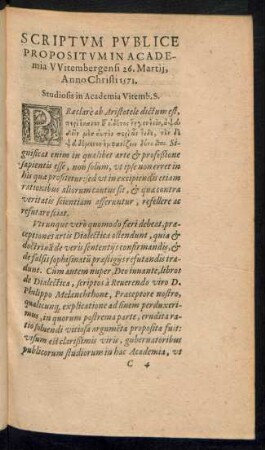 SCRIPTVM PVBLICE
PROPOSITVM IN ACADE-
mia VVitembergensi 26. Martij,
Anno Christi 1571.
Studiosis in Academia Vitemb. S.
PRaeclarè ab Aristotele dictum est,
Si-
gnificat enim in qualibet arte & professione
sapientis esse, non solum, vt ipse non erret in
his quae profitetur: sed vt in excipiendis etiam
rationibus aliorum cautus sit, & quae contra
veritatis scientiam asseruntur, refellere ac
refutare sciat.
Vtrunque verò quomodo fieri debeat, prae-
ceptione artis Dialectica ostendunt, quia &
doctrina de veris sententijs confirmandis, &
de falsis sophismatũ praestigijs refutandis tra-
dunt. Cum autem nuper, Deo iuuante, libros
de Dialectica, scriptos à Reuerendo viro D.
Philippo Melanchthone, Praeceptore nostro,
qualicunq; explicatione ad finem perduxeri-
mus, in quorum postrema parte, erudita ra-
tio soluendi vitiosa argumẽta proposita fuit:
visum est clarissimis viris, gubernatoribus
publicorum studiorum in hac Academia, vt
C 4